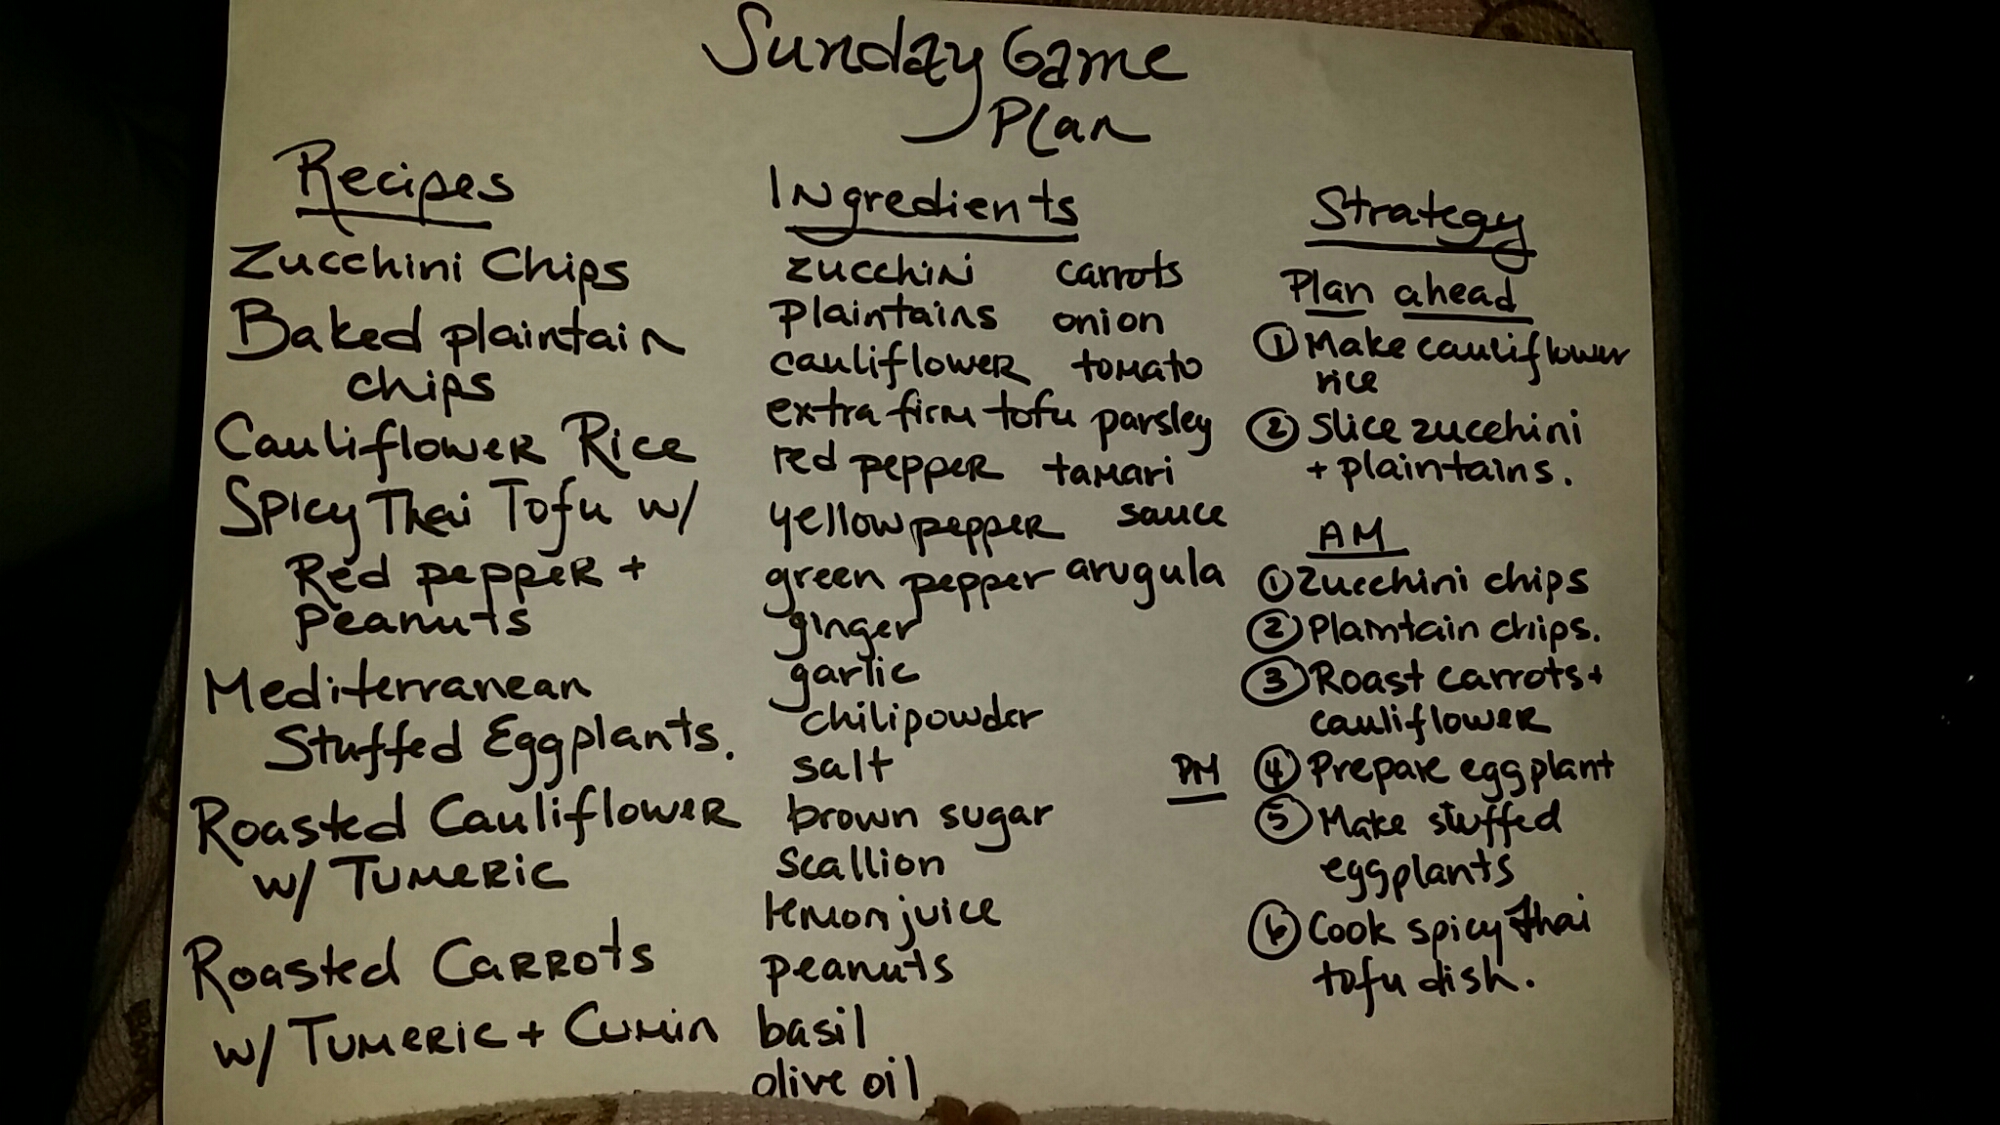 Sunday Game
Plan
Recipes
Zucchini Chips
Baked plaintain
chips
Cauliflower Rice
Spicy Thai Tofu w/
Red pepper +
Peanuts
Mediterranean
Stuffed Eggplants.
Roasted Cauliflower
w/ Tumeric
Roasted Carrots
w/ Tumeric + Cumin
Ingredients
zucchini
plaintains
cauliflower
extra firm tofu
red pepper
yellow pepper
green pepper
ginger
garlic
chili powder
salt
brown sugar
scallion
lemon juice
peanuts
basil
olive oil
carrots
onion
tomato
parsley
tamari
sauce
arugula
Strategy
Plan ahead
① Make cauliflower
rice
② Slice zucchini
+ plaintains.
AM
① Zucchini chips
② Plaintain chips.
③ Roast carrots +
cauliflower
PM ④ Prepare eggplant
⑤ Make stuffed
eggplants
⑥ Cook spicy thai
tofu dish.